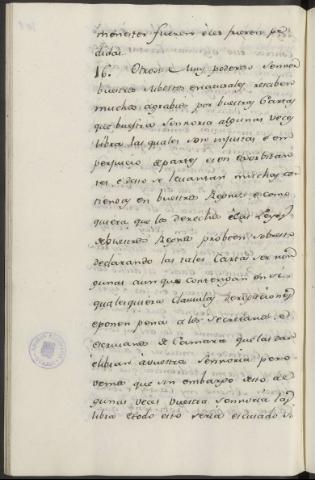 menester fueren é les fueren pe-
didas.
16. Otrosi Muy poderoso Sennor
buestros subditos e naturales resciben
muchos agrabios por buestras Cartas
que buestra Sennoria algunas veces
libra las quales son injustas e en
perjuicio de partes e son exorbitan-
tes e desto se levantan muchas con-
tiendas en buestros Regnos e como
quiera que los derechos é las Leyes
de buestros Regnos probeen sobresto
declarando las tales Cartas ser nin-
gunas aunque contengan en sí
qualesquiera Clausulas derogaciones
e ponen pena a los Secretarios e
escrivanos de Camara que las dan
é libran á vuestra Sennoria pero
vemos que sin embargo desto al-
gunas veces vuestra Sennoria las
libra é todo esto seria escusado si